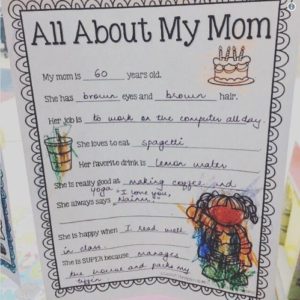 All About My Mom
My mom is 60 years old.
She has brown eyes and brown hair.
Her job is to work on the computer all day.
She loves to eat spagetti
Her favorite drink is lemon water
She is really good at making coffee and
yoga
She always says "I love you,
Naini."
She is happy when I read well
in class.
She is SUPER because manages
the house and packs my
tiffin